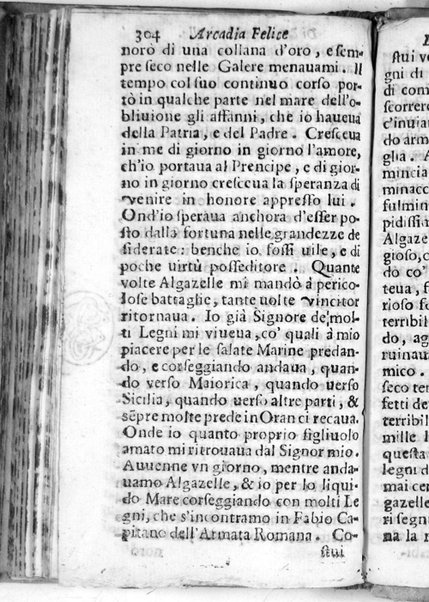 304 Arcadia Felice
norò di una collana d'oro, e sem-
pre seco nelle Galere menauami. Il
tempo col suo continuo corso por-
tò in qualche parte nel mare dell'o-
bliuione gli affanni, che io haueua
della Patria, e del Padre. Cresceua
in me di giorno in giorno l'amore,
ch'io portaua al Prencipe, e di gior-
no in giorno cresceua la speranza di
venire in honore appresso lui.
Ond'io speraua anchora d'esser po-
sto dalla fortuna nelle grandezze de
siderate: benche io fossi uile, e di
poche uirtù posseditore. Quante
volte Algazelle mi mandò à perico-
lose battaglie, tante uolte vincitor
ritornaua. Io già Signore de' mol-
ti Legni mi viueua, co' quali à mio
piacere per le salate Marine predan-
do, e corseggiando andaua, quan-
do verso Maiorica, quando uerso
Sicilia, quando uerso altre parti, &
sēpre molte prede in Oran ci recaua.
Onde io quanto proprio figliuolo
amato mi ritrouaua dal Signor mio.
Auuenne vn giorno, mentre anda-
uamo Algazelle, & io per lo liqui-
do Mare corseggiando con molti Le
gni, che s'incontramo in Fabio Ca-
pitano dell'Armata Romana. Co-
stui
stui v
gni di
di com
scorrere
c'inuia
do arm
glia. A
mincia
minacc
fulmin
pidissi
Algaze
gioso, c
dò co'
teua, f
rioso f
terribil
do, ag
ruinau
mico.
seco ter
fetti de
terribil
mille l
questa
legni d
mai cer
gazelle
ri segni
na la r